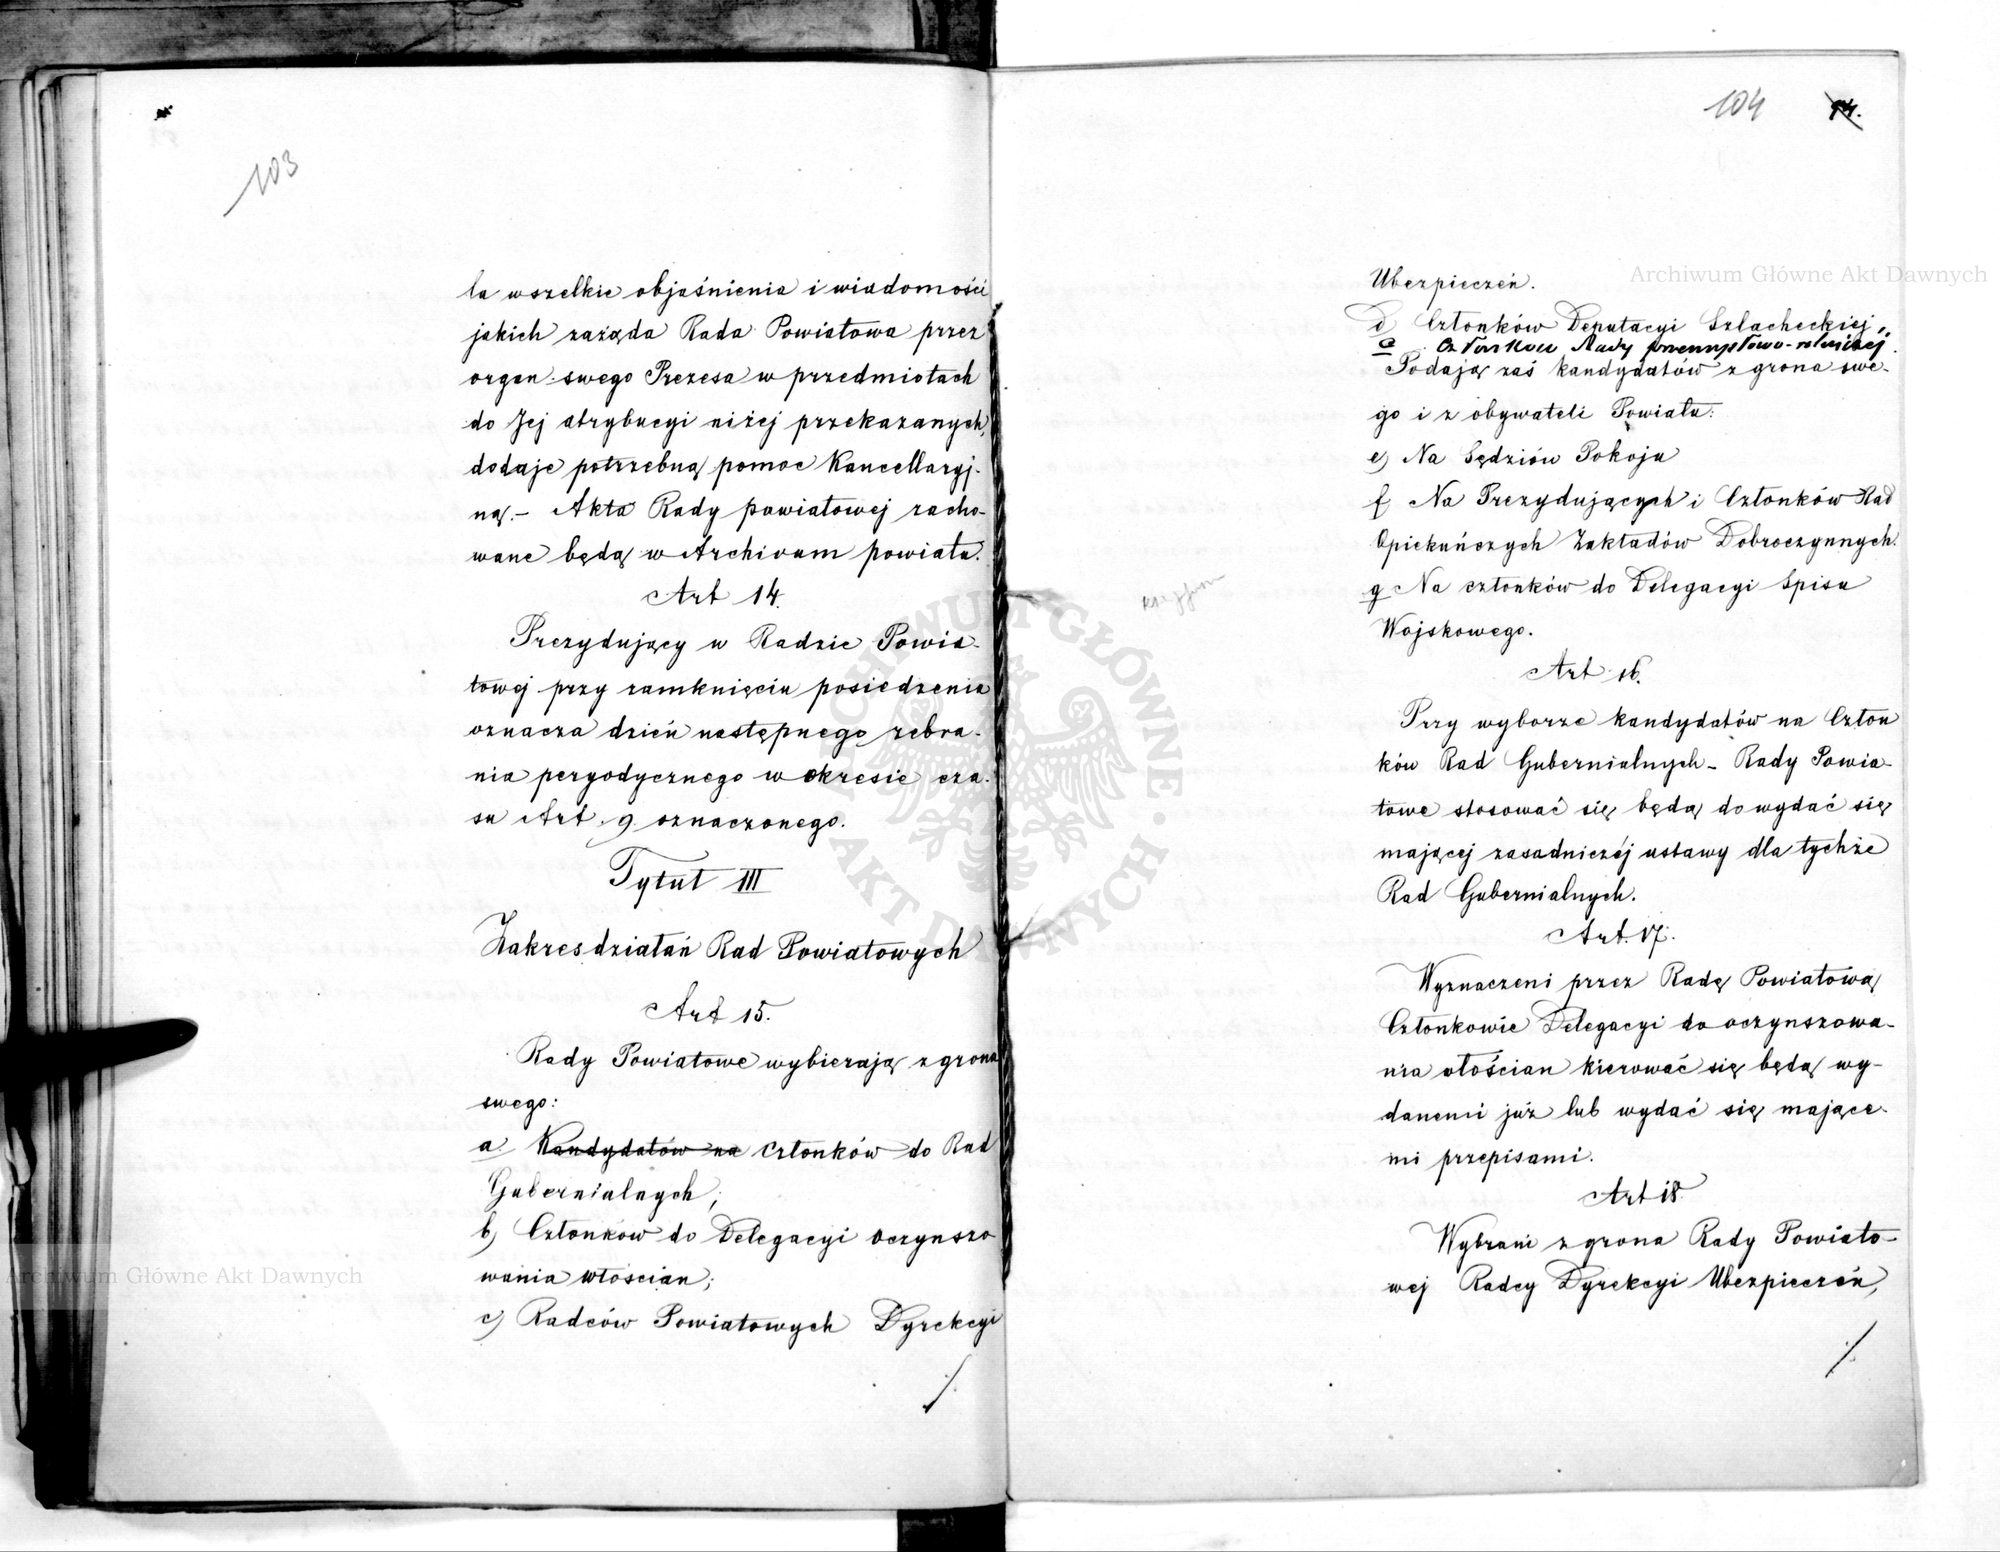 103
la wszelkie objaśnienia i wiadomości
jakich zażąda Rada Powiatowa przez
organ swego Prezesa w przedmiotach
do Jej atrybucyi niżej przekazanych,
dodaje potrzebną pomoc Kancellaryj-
ną.– Akta Rady powiatowej zacho-
wane będą w Archivum powiatu.
Art 14.
Prezydujący w Radzie Powia-
towej przy zamknięciu posiedzenia
oznacza dzień następnego zebra-
nia peryodycznego w okresie cza-
su Art. 9. oznaczonego.
Tytuł III
Zakres działań Rad Powiatowych
Art 15.
Rady Powiatowe wybierają z grona
swego:
a. Kandydatów na członków do Rad
Gubernialnych;
b) Członków do Delegacyi oczynszo
wania włościan;
c) Radców Powiatowych Dyrekcyi
./.
104 94.
Ubezpieczeń.
d) Członków Deputacyi Szlacheckiej,,
e Członków Rady przemysłowo-rolniczej.
Podają zaś kandydatów z grona swe-
go i z obywateli Powiatu:
e) Na Sędziów Pokoju
f Na Prezydujących i Członków Rad
Opiekuńczych Zakładów Dobroczynnych.
g Na członków do Delegacyi Spisu
Wojskowego.
Art 16.
Przy wyborze kandydatów na Człon
ków Rad Gubernialnych – Rady Powia-
towe stosować się będą do wydać się
mającej zasadniczéj ustawy dla tychże
Rad Gubernialnych.
Art. 17.
Wyznaczeni przez Radę Powiatową
Członkowie Delegacyi do oczynszowa-
nia włościan kierować się będą wy-
danemi już lub wydać się mające-
mi przepisami.
Art 18.
Wybrani z grona Rady Powiato-
wej Radcy Dyrekcyi Ubezpieczeń,
./.
Archiwum Główne Akt Dawnych
Archiwum Główne Akt Dawnych
ARCHIWUM GŁÓWNE AKT DAWNYCH